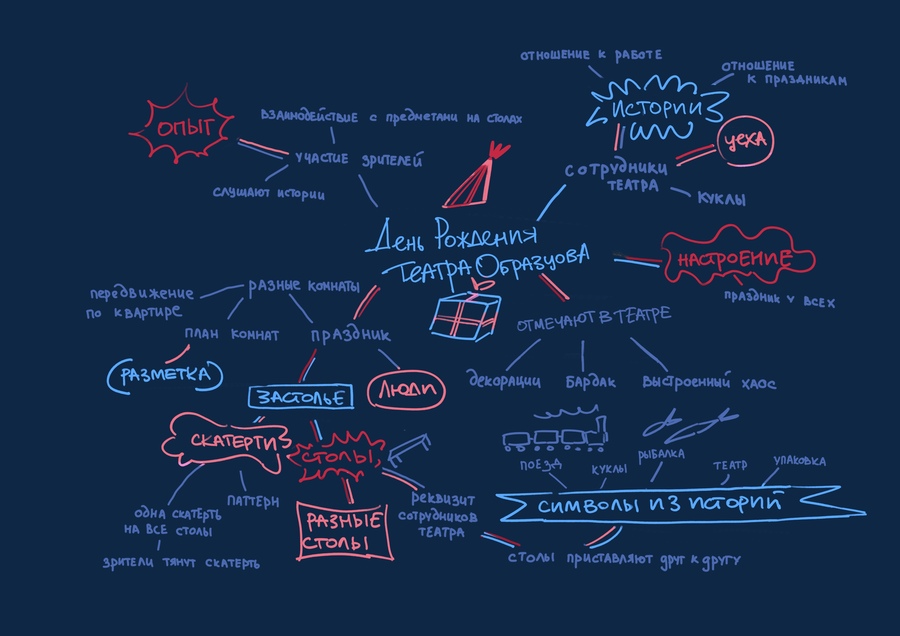 ОТНОШЕНИЕ К РАБОТЕ
ОТНОШЕНИЕ
К ПРАЗДНИКАМ
ИСТОРИИ
ОПЫТ
ВЗАИМОДЕЙСТВИЕ С ПРЕДМЕТАМИ НА СТОЛАХ
ЦЕХА
УЧАСТИЕ ЗРИТЕЛЕЙ
СОТРУДНИКИ
ТЕАТРА
СЛУШАЮТ ИСТОРИИ
КУКЛЫ
День Рождения
Театра Образцова
НАСТРОЕНИЕ
ПРАЗДНИК У ВСЕХ
РАЗНЫЕ КОМНАТЫ
ПЕРЕДВИЖЕНИЕ
ПО КВАРТИРЕ
ПЛАН КОМНАТ
ПРАЗДНИК
ОТМЕЧАЮТ В ТЕАТРЕ
РАЗМЕТКА
ЗАСТОЛЬЕ
ЛЮДИ
ДЕКОРАЦИИ
БАРДАК
ВЫСТРОЕННЫЙ ХАОС
СКАТЕРТИ
СТОЛЫ
ПОЕЗД
КУКЛЫ
РЫБАЛКА
ТЕАТР
УПАКОВКА
ПАТТЕРН
ОДНА СКАТЕРТЬ
НА ВСЕ СТОЛЫ
ЗРИТЕЛИ ТЯНУТ СКАТЕРТЬ
РАЗНЫЕ
СТОЛЫ
РЕКВИЗИТ
СОТРУДНИКОВ
ТЕАТРА
СИМВОЛЫ ИЗ ИСТОРИЙ
СТОЛЫ ПРИСТАВЛЯЮТ ДРУГ К ДРУГУ